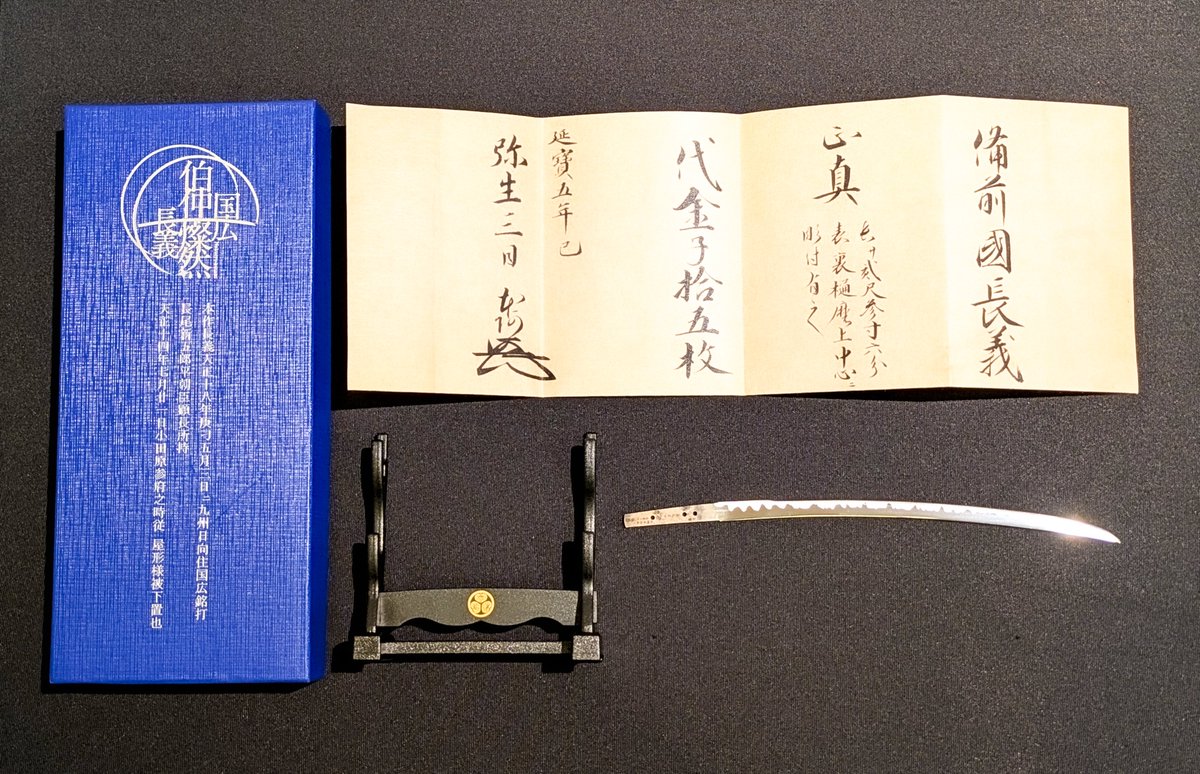 国広
伯仲燦然
長義
本作長義天正十八年庚刁五月三日ニ九州日向住国広銘打
長尾新五郎平朝臣顕長所持
天正十四年七月廿一日小田原参府之時従 屋形様被下置也
備前國長義
正真
長サ弐尺参寸六分
表裏樋磨上中心ニ
彫付有之
代金子拾五枚
延寶五年巳
弥生三日 本阿